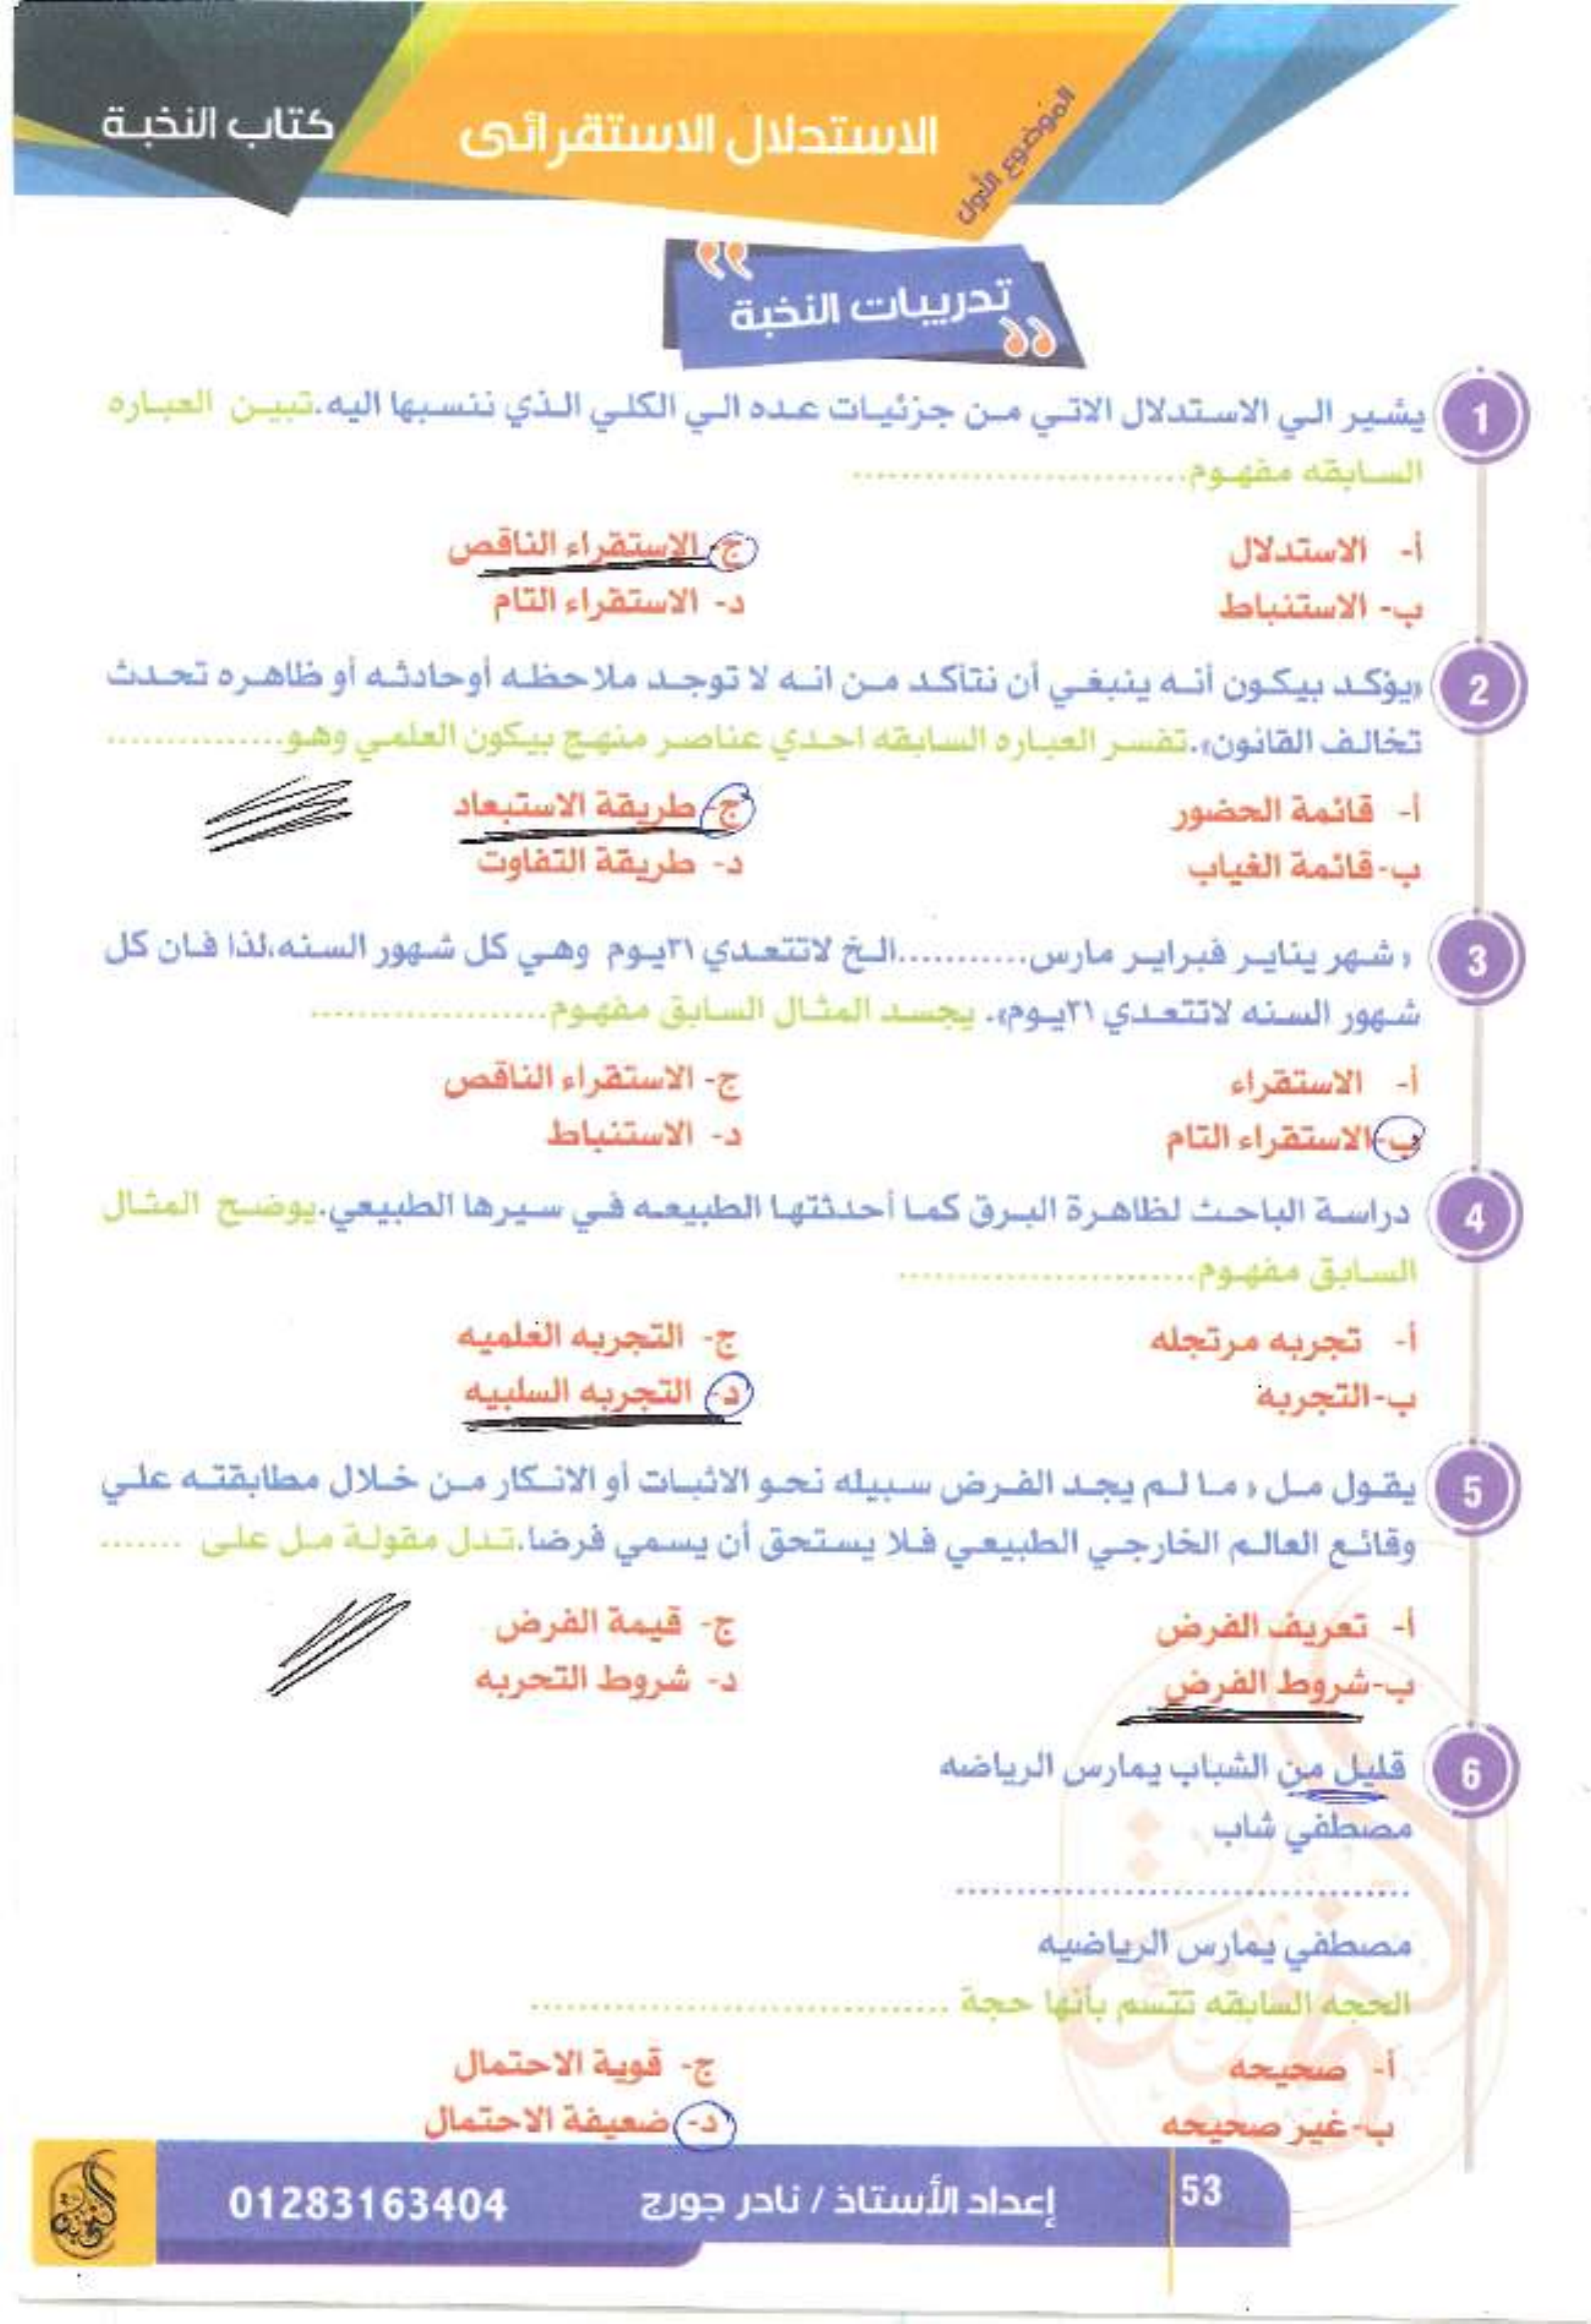 كتاب النخبة
الاستدلال الاستقرائى
الموضوع الأول
تدريبات النخبة
1 يشير الي الاستدلال الاتي من جزئيات عده الي الكلي الذي ننسبها اليه.تبين العباره
السابقه مفهوم............................
أ- الاستدلال
ب- الاستنباط
ج- الاستقراء الناقص
د- الاستقراء التام
2 «يؤكد بيكون أنه ينبغي أن نتأكد من انه لا توجد ملاحظه أوحادثه أو ظاهره تحدث
تخالف القانون».تفسر العباره السابقه احدي عناصر منهج بيكون العلمي وهو...............
أ- قائمة الحضور
ب-قائمة الغياب
ج- طريقة الاستبعاد
د- طريقة التفاوت
3 « شهر يناير فبراير مارس...........الخ لاتتعدي ٣١يوم وهي كل شهور السنه،لذا فان كل
شهور السنه لاتتعدي ٣١يوم». يجسد المثال السابق مفهوم....................
أ- الاستقراء
ب-الاستقراء التام
ج- الاستقراء الناقص
د- الاستنباط
4 دراسة الباحث لظاهرة البرق كما أحدثتها الطبيعه في سيرها الطبيعي.يوضح المثال
السابق مفهوم.........................
أ- تجربه مرتجله
ب-التجربه
ج- التجربه العلميه
د- التجربه السلبيه
5 يقول مل « ما لم يجد الفرض سبيله نحو الاثبات أو الانكار من خلال مطابقته علي
وقائع العالم الخارجي الطبيعي فلا يستحق أن يسمي فرضا.تدل مقولة مل على .......
أ- تعريف الفرض
ب-شروط الفرض
ج- قيمة الفرض
د- شروط التجربه
6 قليل من الشباب يمارس الرياضه
مصطفي شاب
.......................................
مصطفي يمارس الرياضيه
الحجه السابقه تتسم بأنها حجة ....................................
أ- صحيحه
ب-غير صحيحه
ج- قوية الاحتمال
د- ضعيفة الاحتمال
53
إعداد الأستاذ / نادر جورج
01283163404